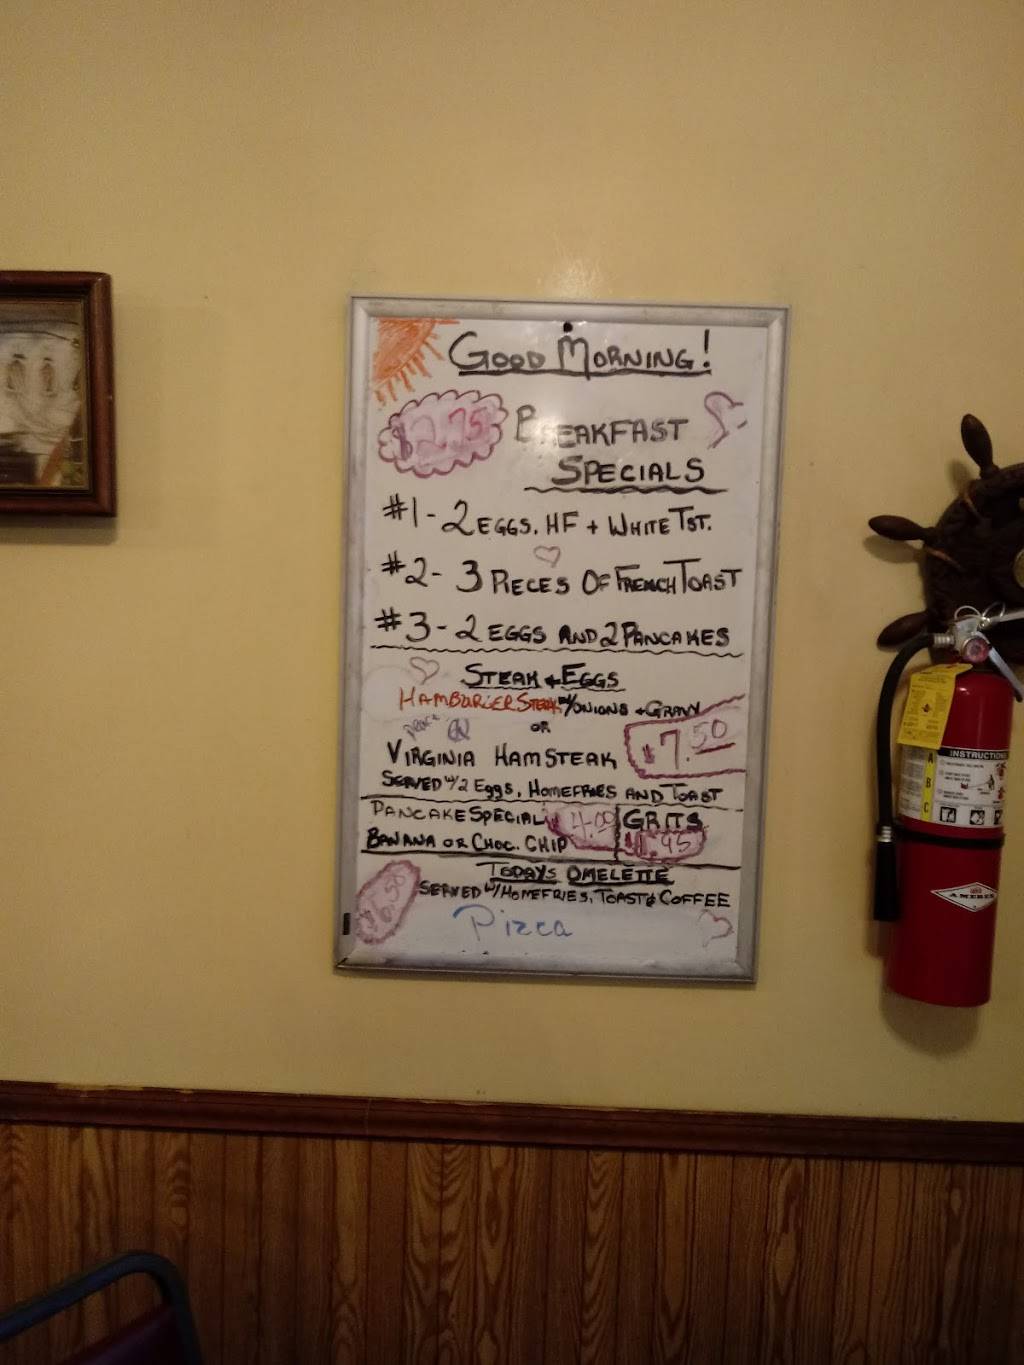 GOOD MORNING!
$2.75 BREAKFAST
SPECIALS
#1 - 2 EGGS, HF + WHITE TST.
#2 - 3 PIECES OF FRENCH TOAST
#3 - 2 EGGS AND 2 PANCAKES
STEAK + EGGS
HAMBURGER STEAK W/ONIONS + GRAVY
OR
VIRGINIA HAM STEAK $7.50
SERVED W/2 Eggs, HOMEFRIES AND TOAST
PANCAKE SPECIAL $4.00 GRITS
BANANA OR CHOC. CHIP $1.95
TODAYS OMELETTE
$6.50 SERVED W/HOMEFRIES, TOAST & COFFEE
Pizza
INSTRUCTIONS
A
B
C
AMEREX